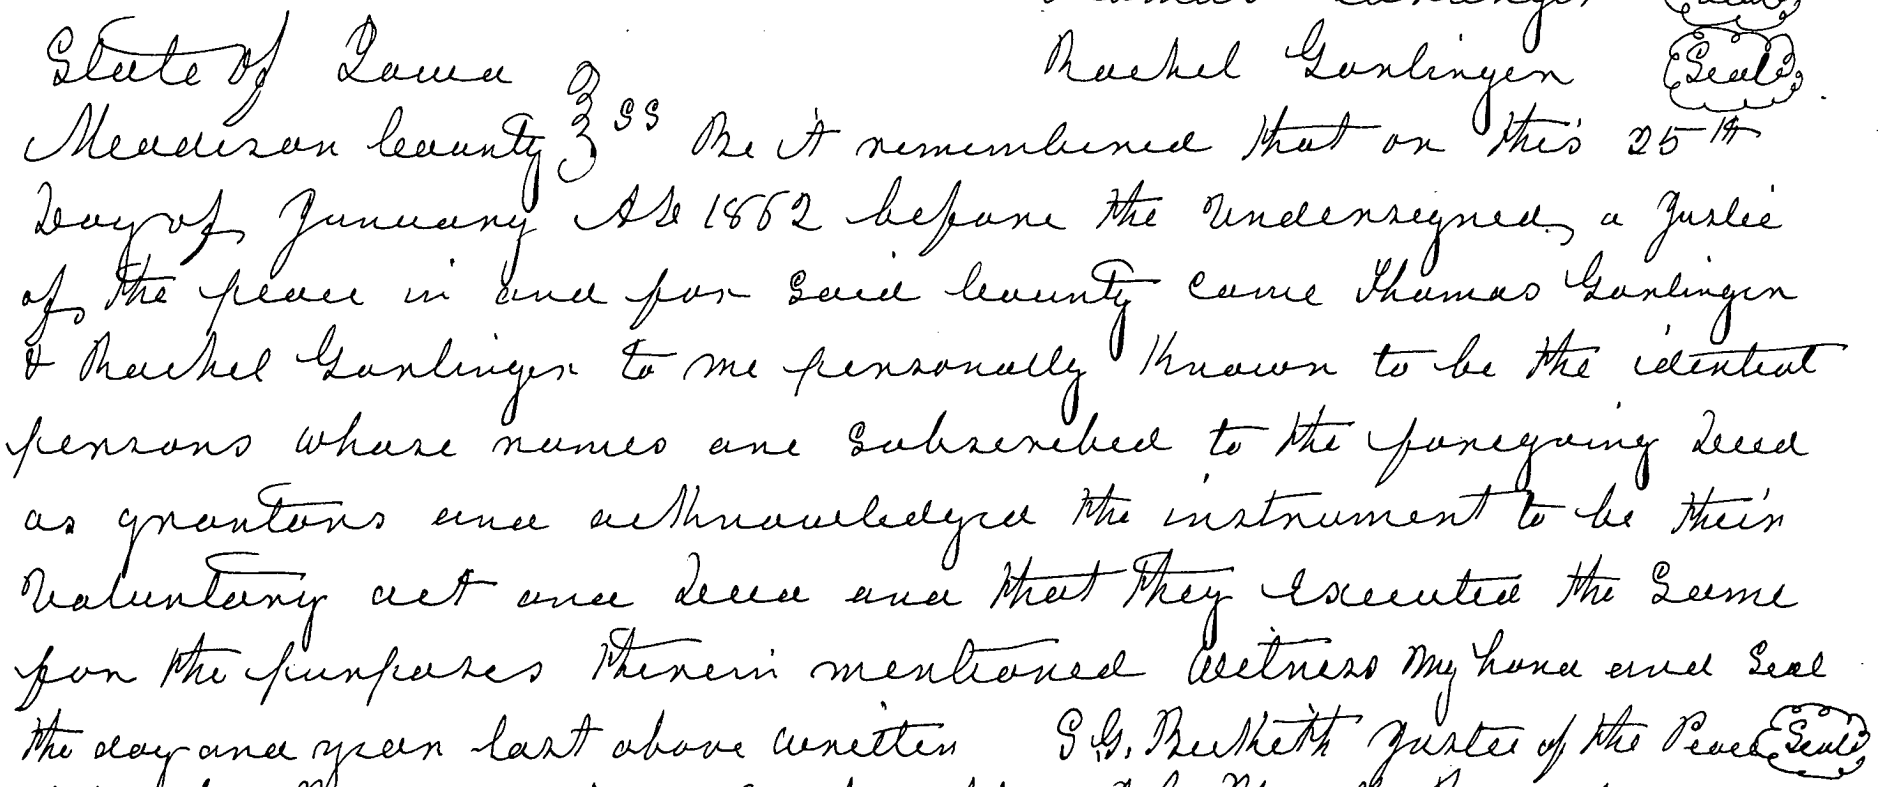 Rachel Garlinger Seal
State of Iowa
Maddison County ss Be it remembered that on this 25th
Day of January AD 1862 before the undersigned, a Justic
of the peace in and for said County came Thomas Garlinger
& Rachel Garlinger to me personally Known to be the identical
persons whose names are subscribed to the foregoing Deed
as grantors and acknowledged the instrument to be their
Voluntary act and Deed and that they Executed the Same
for the purposes therein mentioned Witness My hand and Seal
the day and year last above written S. G. Beckwith Justice of the Peace Seal